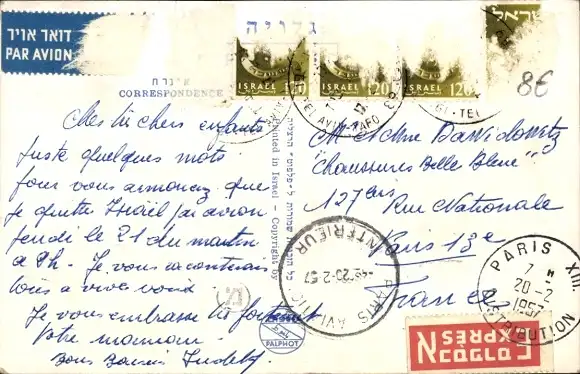 דואר אויר
PAR AVION
גלויה
אינרת
CORRESPONDENCE
ISRAEL 120
ISRAEL 120
ISRAEL 120
ישראל
TEL AVIV-YAFO
8€
Chers chers enfants
Juste quelques mots
pour vous annoncez que
je quitte Israël par avion
jeudi le 21 du matin
à 8h. Je vous raconterais
tous à vive voix
Je vous embrasse très fortement
Votre maman
Bons Baisers
כל הזכויות שמורות ל"פלפוט" הרצליה
Printed in Israel Copyright by
PALPHOT
M et Me Dawidowitz
"Chaussures Belle Bleue"
127 bis Rue Nationale
Paris 13e
France
PARIS AVIATION
ETRANGER
20-2-57
PARIS XIII
7H
20-2
1957
DISTRIBUTION
EXPRÈS
אקספרס